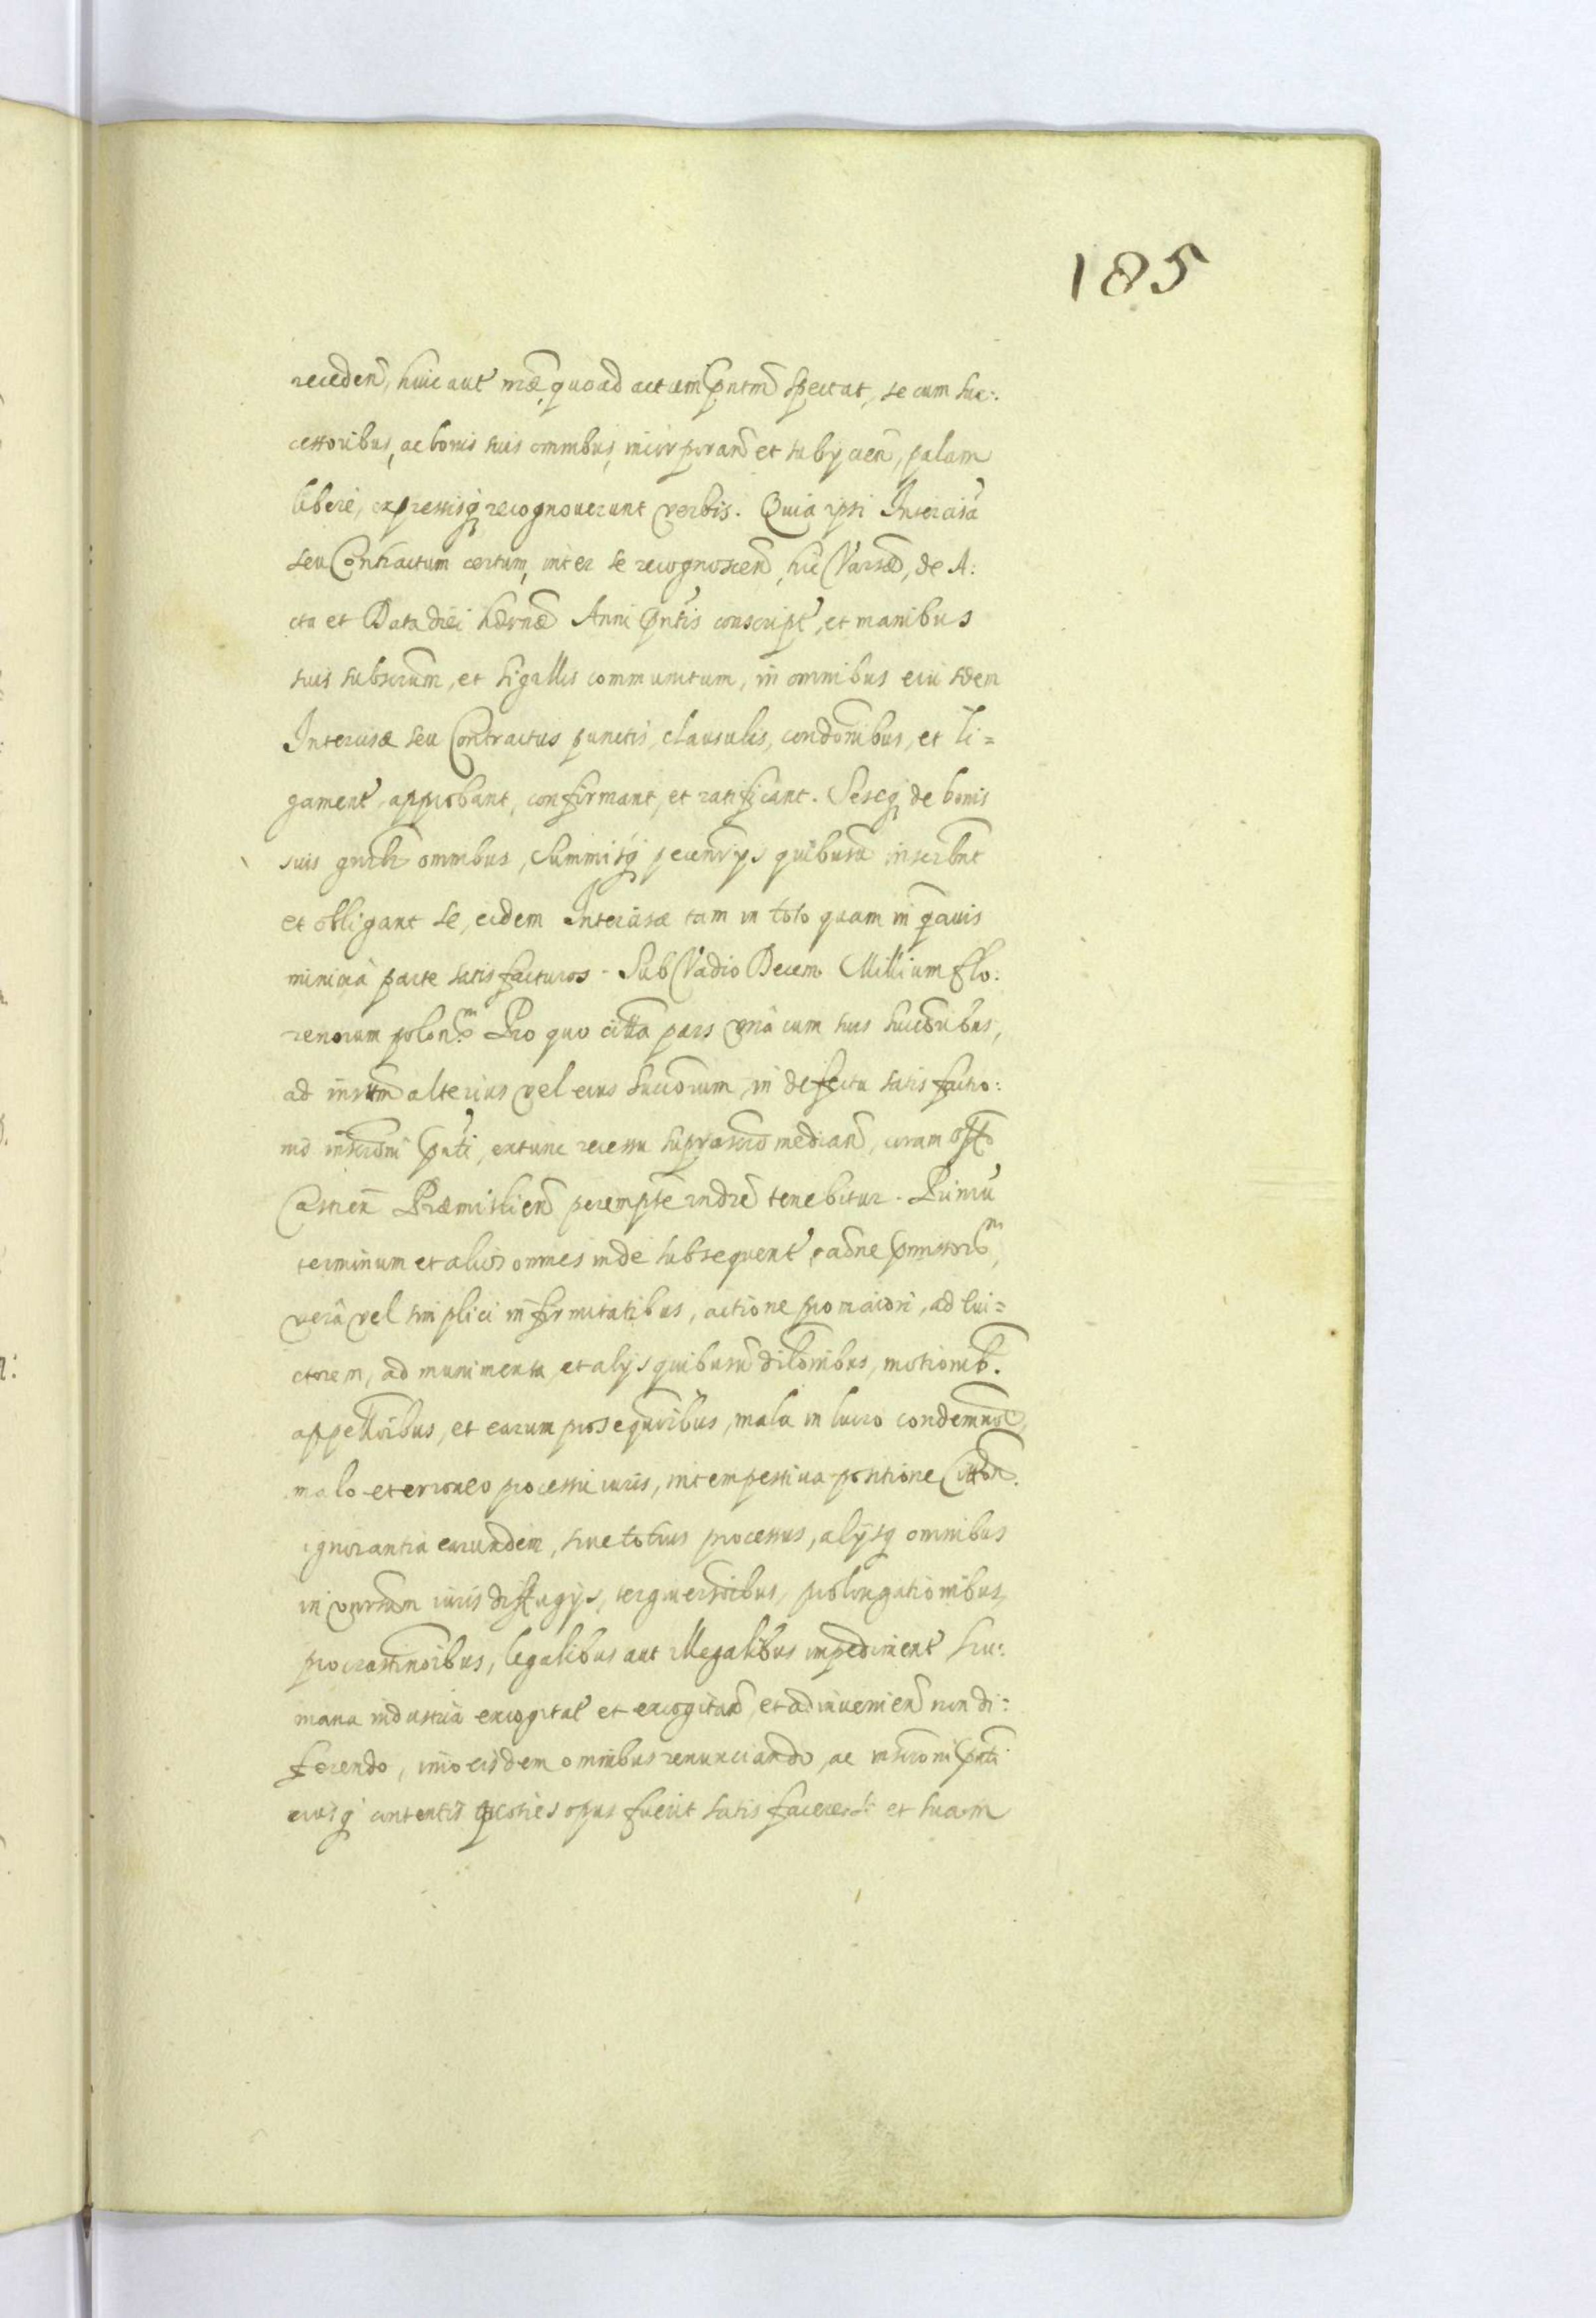 185
receden̄, huic aut̄ n̄ræ, quoad actum p̄ntem Spectat, se cum suc:
cessoribus, ac bonis suis omnibus, incorporan̄ et subÿcien̄, palam
liberè, expressisq recognouerunt verbis. Quia ipsi Intercisā
seu Contractum certum, inter se recognoscen̄, hic Varsæ, de A:
cta et Data diei hodrnæ Anni p̄ntis conscript̄, et manibus
suis subscrum̄, et sigillis communitum, in omnibus eiusdem
Intercisæ seu Contractus punctis, clausulis, condōnibus, et li=
gament̄, approbant, confirmant, et ratificant. Seseq de bonis
suis gn̄rlr omnibus, Summisq pecunrÿs quibusū inscrib̄nt
et obligant se, eidem Intercisæ tam in toto quam in quauis
minima parte satisfacturos. Sub Vadio Decem Millium flo:
renorum polon. Pro quo citta pars vnà cum suis succoribus,
ad inst̄m alterius vel eius succorum, in defectu satisfactio:
nis inscrōni p̄nti, extunc recessu suprascrō median̄, coram offō
Castren̄ Præmislien̄ perempt̄e rndre tenebitur. Primū
terminum et alios omnes inde subsequent̄,
verâ vel simplici infirmitatibus, actione pro maiori, ad eui=
ctorem, ad munimenta, et alÿs quibusū dilōnibus, motionib.
appellōibus, et earum prosequōibus, mala in lucro condemnōe,
malo et erroneo processu iuris, intempestiua positione Citton̄.
ignorantia earundem, siue totius processus, alÿsq omnibus
in vnrsum iuris diffugÿs, tergiuersōibus, prolongationibus,
procrastinōibus, legalibus aut illegalibus impediment̄ hu:
mana industria excogitat̄ et excogitan̄, et adinuenien̄ non di:
fferendo, imo eisdem omnibus renunciando, ac inscrōni p̄nti
eiusq contentis toties quoties opus fuerit satisfacere et suam